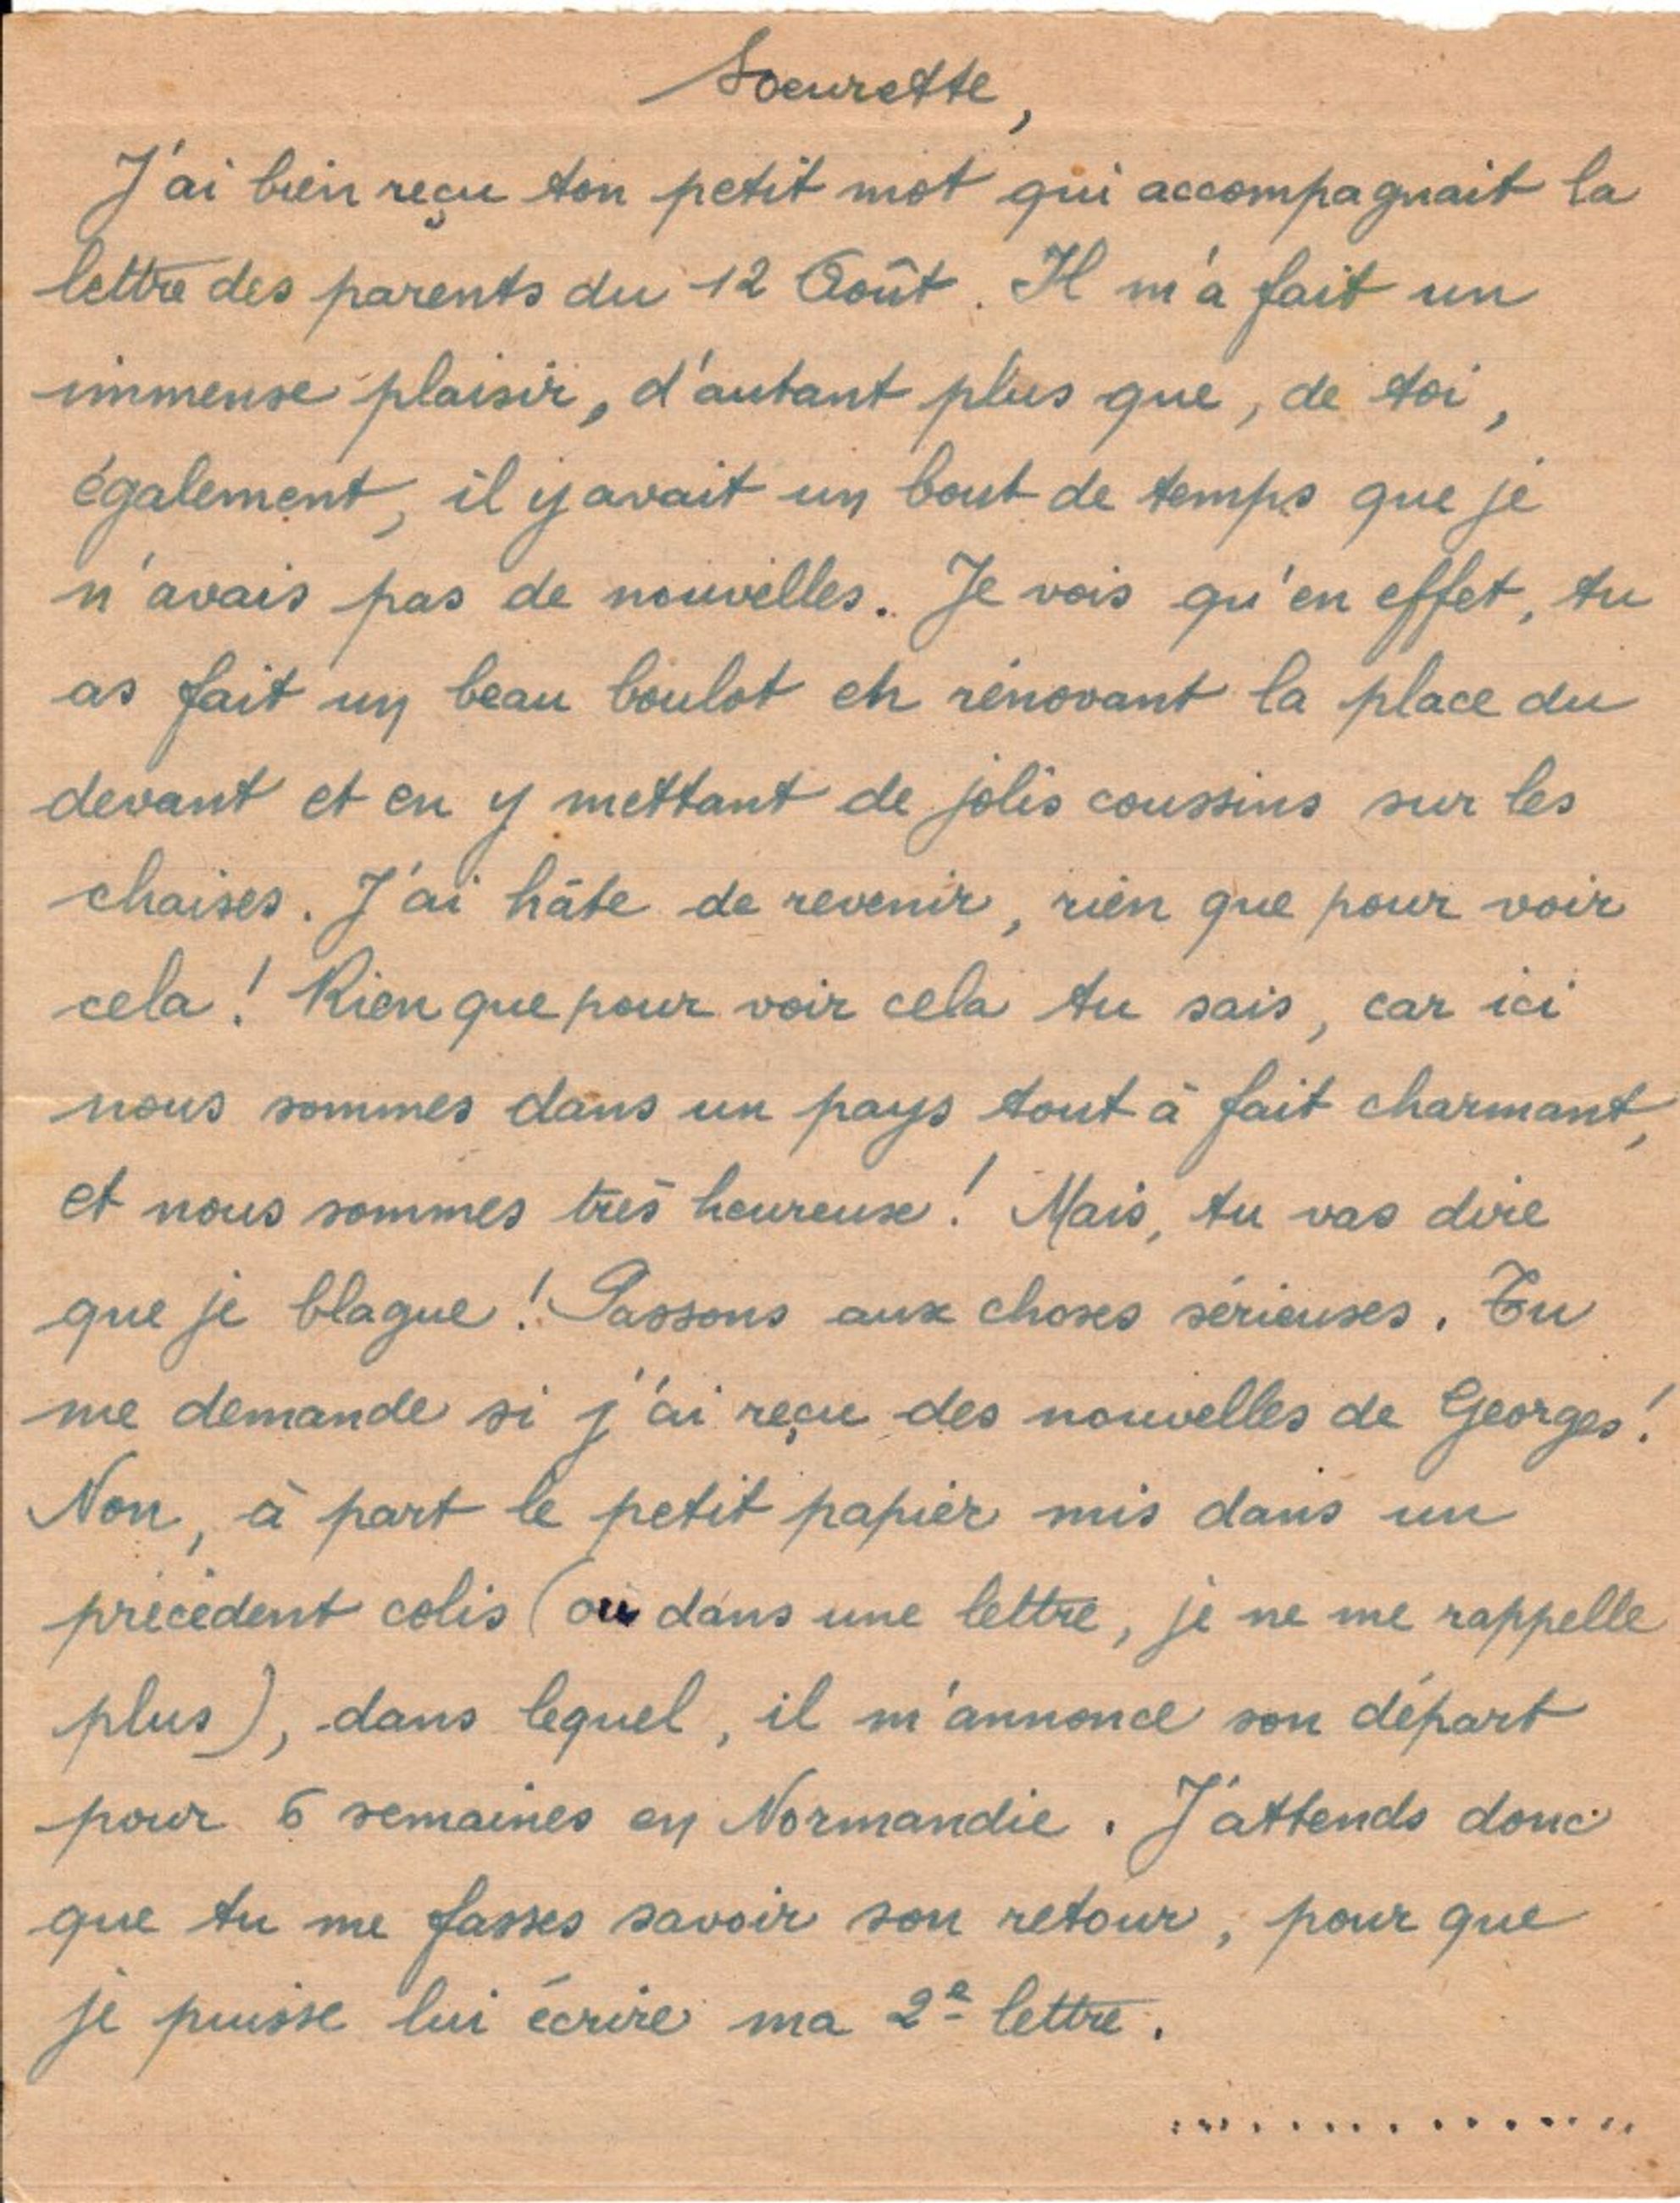 Soeurette,
J'ai bien reçu ton petit mot qui accompagnait la
lettre des parents du 12 Août. Il m'a fait un
immense plaisir, d'autant plus que, de toi,
également, il y avait un bout de temps que je
n'avais pas de nouvelles. Je vois qu'en effet, tu
as fait un beau boulot en rénovant la place du
devant et en y mettant de jolis coussins sur les
chaises. J'ai hâte de revenir, rien que pour voir
cela! Rien que pour voir cela tu sais, car ici
nous sommes dans un pays tout à fait charmant,
et nous sommes très heureuse! Mais, tu vas dire
que je blague! Passons aux choses sérieuses. Tu
me demande si j'ai reçu des nouvelles de Georges!
Non, à part le petit papier mis dans un
précédent colis (ou dans une lettre, je ne me rappelle
plus), dans lequel, il m'annonce son départ
pour 6 semaines en Normandie. J'attends donc
que tu me fasses savoir son retour, pour que
je puisse lui écrire ma 2e lettre.
..............